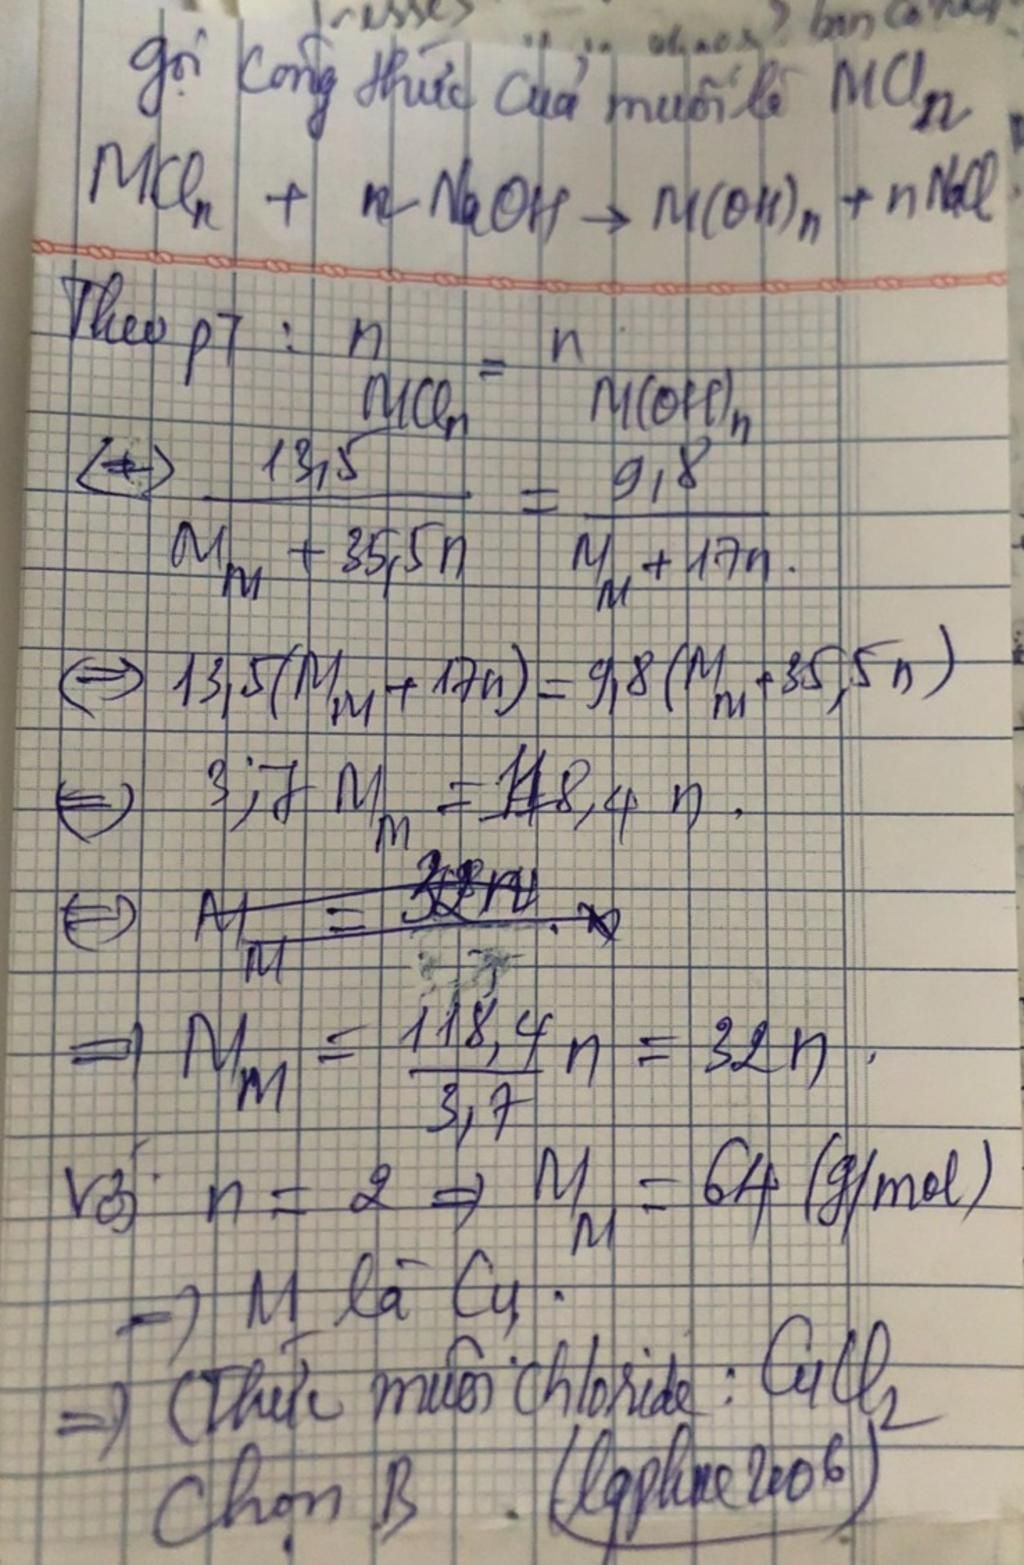 gọi công thức của muối là MCln
MCln + n NaOH → M(OH)n + nNaCl
Theo pT : n MCln = n M(OH)n
(⇔) 13,5 / (M_M + 35,5n) = 9,8 / (M_M + 17n).
(⇔) 13,5(M_M + 17n) = 9,8(M_M + 35,5n)
(⇔) 3,7 M_M = 118,4 n.
(⇔) M_M = 32n
⇒ M_M = 118,4 / 3,7 n = 32n.
Với n = 2 ⇒ M_M = 64 (g/mol)
⇒ M là Cu.
⇒ CThức muối chloride : CuCl2
Chọn B. (lgphne2006)